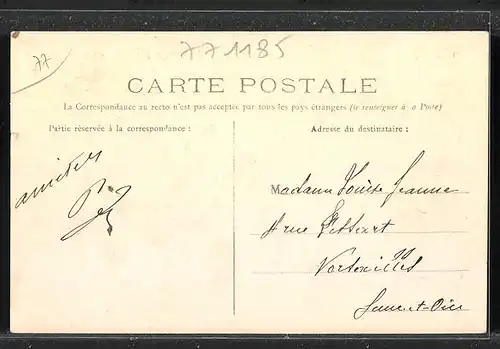 77
771185
CARTE POSTALE
La Correspondance au recto n'est pas acceptée par tous les pays étrangers (se renseigner à la Poste)
Partie réservée à la correspondance :
Adresse du destinataire :
amitiés
Madame Louise Jeanne
4 rue
Seine-et-Oise